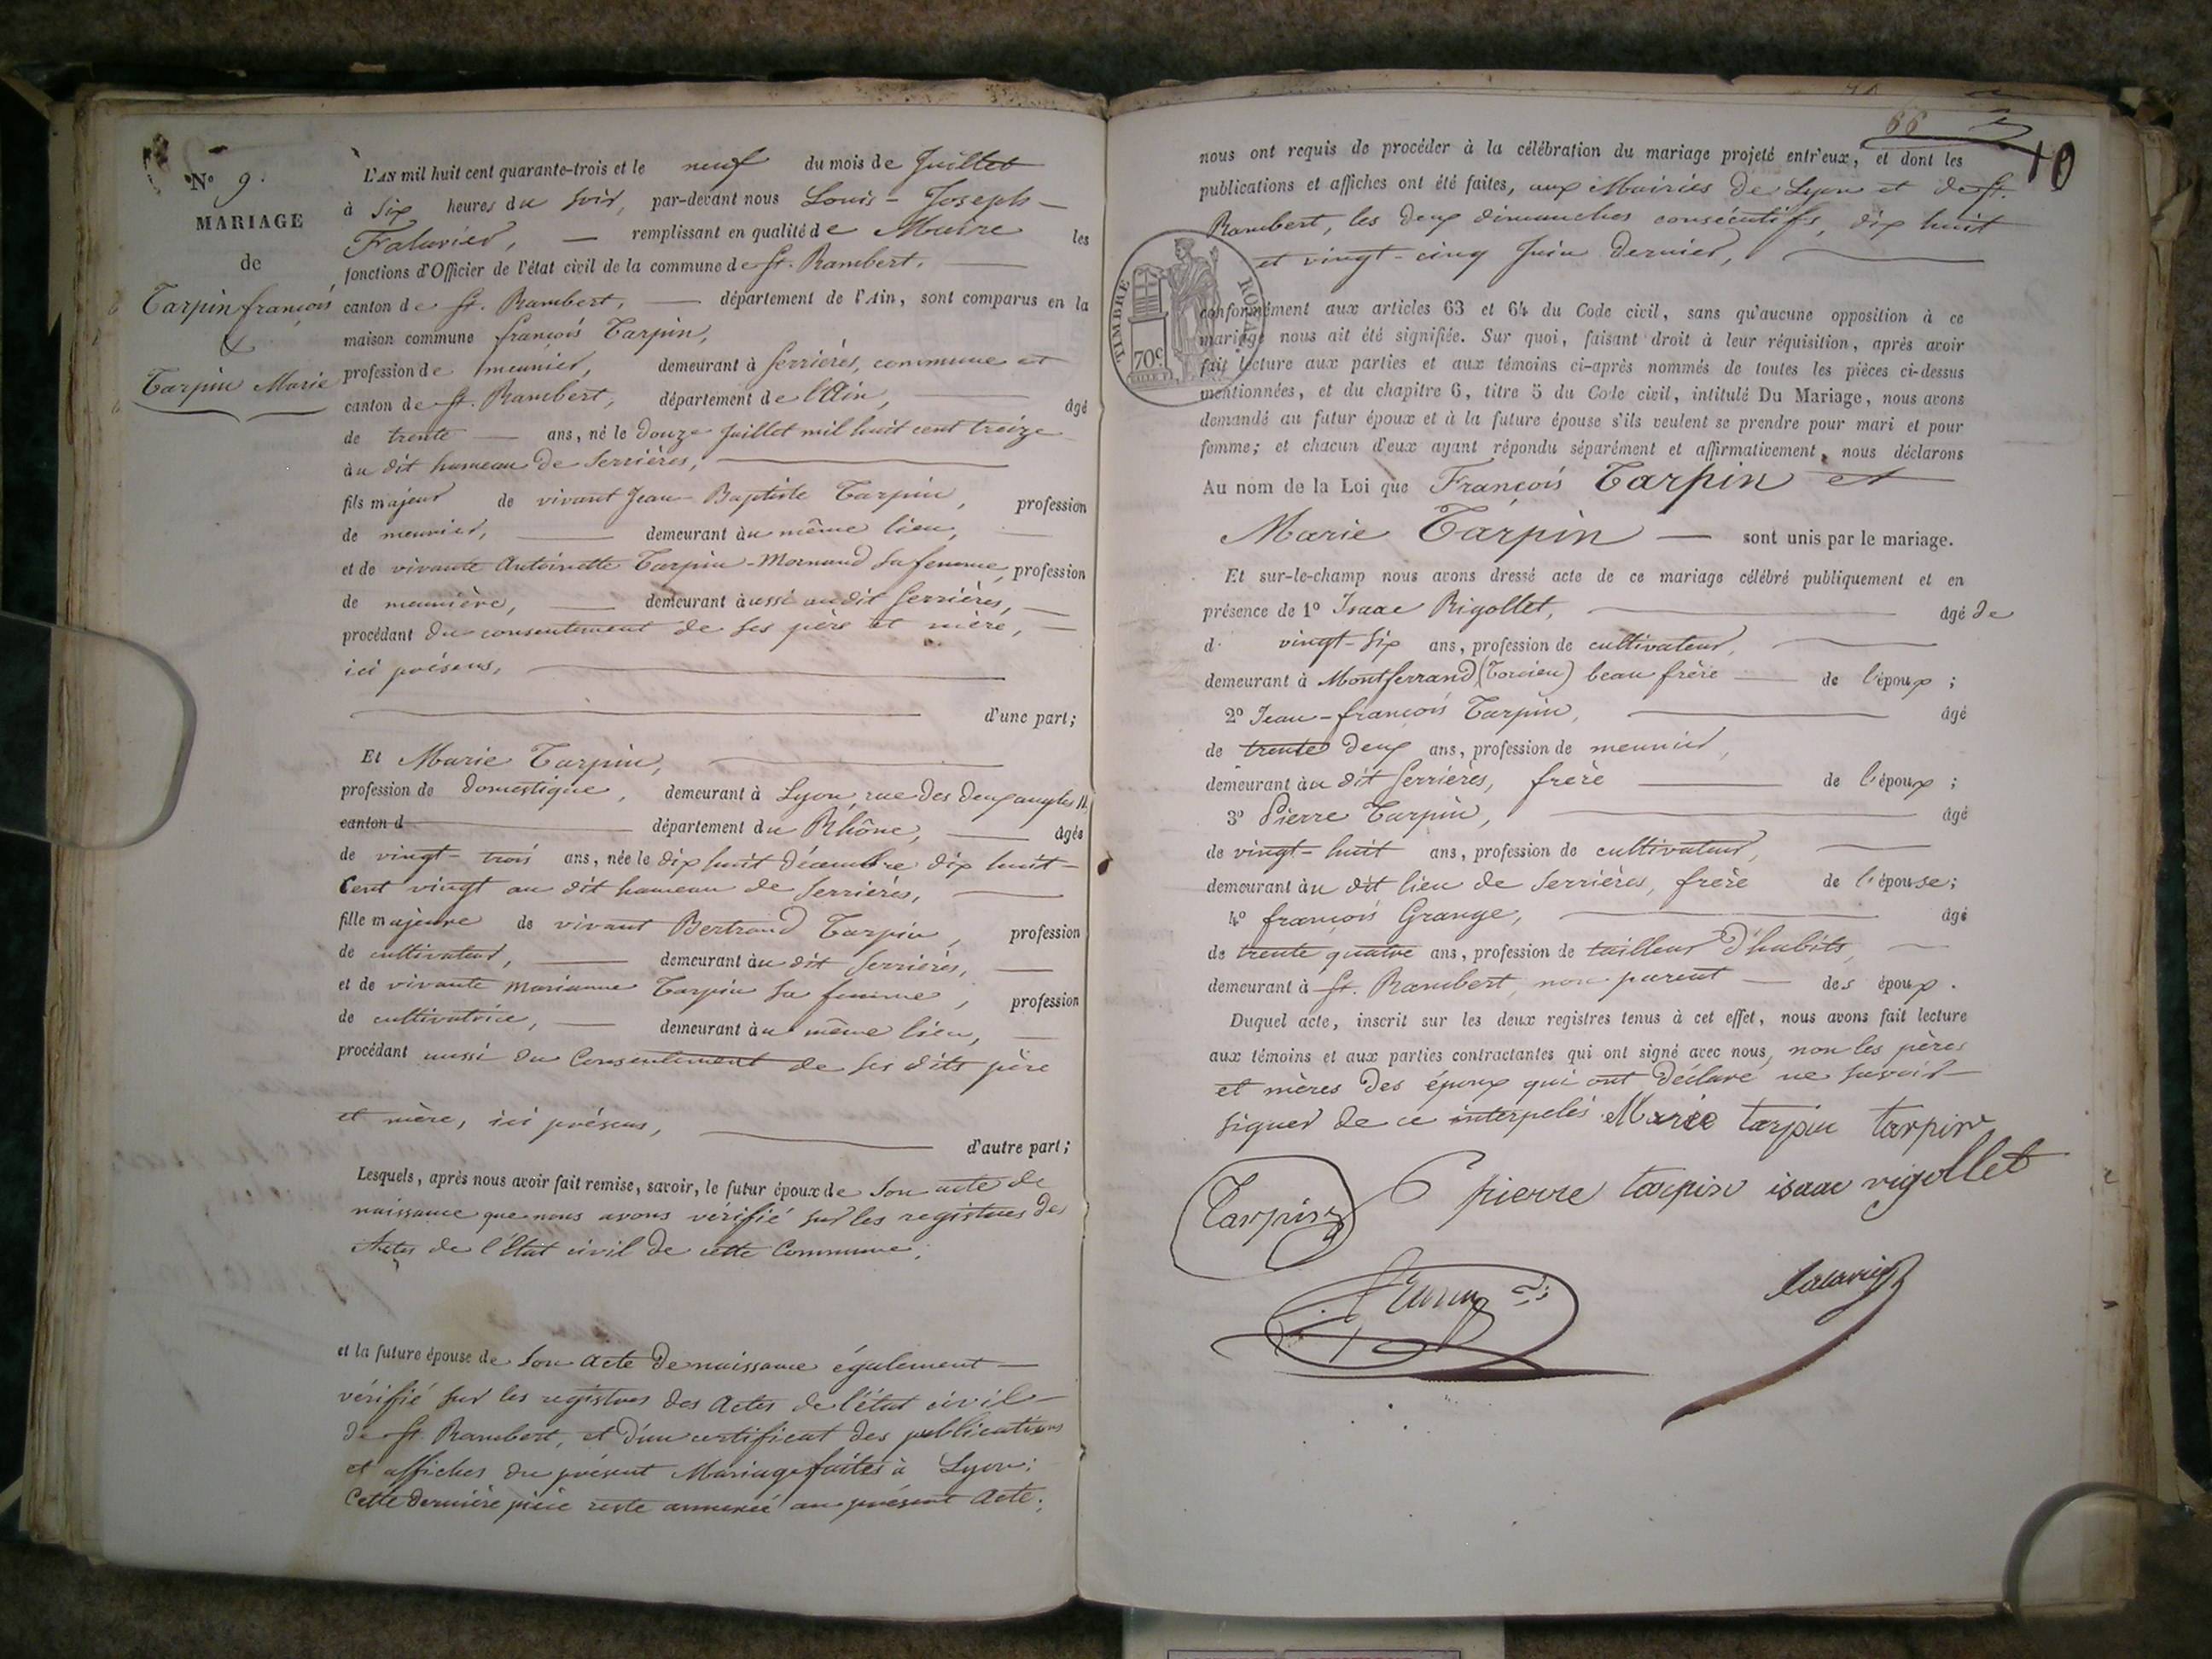 N° 9.
MARIAGE
de
Tarpin françois
&
Tarpin Marie
L'AN mil huit cent quarante-trois et le neuf du mois de Juillet
à six heures du soir, par-devant nous Louis-Joseph-
Falavier, remplissant en qualité de Maire les
fonctions d'Officier de l'état civil de la commune de St. Rambert,
canton de St. Rambert, département de l'Ain, sont comparus en la
maison commune françois Tarpin,
profession de meunier, demeurant à Serrières, commune et
canton de St. Rambert, département de l'Ain, âgé
de trente ans, né le douze Juillet mil huit cent treize
au dit hameau de Serrières,
fils majeur de vivant Jean-Baptiste Tarpin, profession
de meunier, demeurant au même lieu,
et de vivante Antoinette Tarpin-Mornand sa femme, profession
de meunière, demeurant aussi au dit Serrières,
procédant du consentement de ses père et mère,
ici présens,
d'une part;
Et Marie Tarpin,
profession de domestique, demeurant à Lyon, rue des deux angles 11,
canton d département du Rhône, âgée
de vingt-trois ans, née le dix huit décembre dix huit-
Cent vingt au dit hameau de Serrières,
fille majeure de vivant Bertrand Tarpin, profession
de cultivateur, demeurant au dit Serrières,
et de vivante Marianne Tarpin sa femme, profession
de cultivatrice, demeurant au même lieu,
procédant aussi du Consentement de ses dits père
et mère, ici présens,
d'autre part;
Lesquels, après nous avoir fait remise, savoir, le futur époux de son acte de
naissance que nous avons vérifié sur les registres des
Actes de l'Etat civil de cette Commune;
et la future épouse de son acte de naissance également
vérifié sur les registres des Actes de l'état civil
de St Rambert, et d'un certificat des publications
et affiches du présent Mariage faites à Lyon;
Cette dernière pièce reste annexée au présent Acte;
66
10
nous ont requis de procéder à la célébration du mariage projeté entr'eux, et dont les
publications et affiches ont été faites, aux Mairies de Lyon et de St.
Rambert, les deux dimanches consécutifs, dix huit
et vingt-cinq Juin dernier,
TIMBRE ROYAL
70c.
conformément aux articles 63 et 64 du Code civil, sans qu'aucune opposition à ce
mariage nous ait été signifiée. Sur quoi, faisant droit à leur réquisition, après avoir
fait lecture aux parties et aux témoins ci-après nommés de toutes les pièces ci-dessus
mentionnées, et du chapitre 6, titre 5 du Code civil, intitulé Du Mariage, nous avons
demandé au futur époux et à la future épouse s'ils veulent se prendre pour mari et pour
femme; et chacun d'eux ayant répondu séparément et affirmativement, nous déclarons
Au nom de la Loi que François Tarpin et
Marie Tarpin sont unis par le mariage.
Et sur-le-champ nous avons dressé acte de ce mariage célébré publiquement et en
présence de 1° Isaac Rigollet, âgé de
d vingt-six ans, profession de cultivateur,
demeurant à Montferrand (Torcieu) beau frère de l'époux;
2° Jean-françois Tarpin, âgé
de trente deux ans, profession de meunier,
demeurant au dit Serrières, frère de l'époux;
3° Pierre Tarpin, âgé
de vingt-huit ans, profession de cultivateur,
demeurant au dit lieu de Serrières, frère de l'épouse;
4° françois Grange, âgé
de trente quatre ans, profession de tailleur d'habits,
demeurant à St. Rambert, non parent des époux.
Duquel acte, inscrit sur les deux registres tenus à cet effet, nous avons fait lecture
aux témoins et aux parties contractantes qui ont signé avec nous, non les pères
et mères des époux qui ont déclaré ne savoir
signer de ce interpelés Marie tarpin tarpin
Tarpin pierre tarpin isaac rigollet
falavier